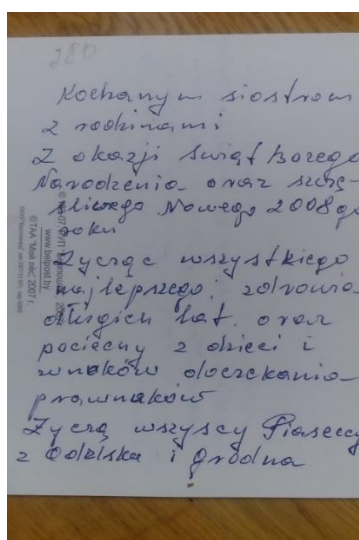 280
Kochanym siostrom
z rodzinami
Z okazji Świąt Bożego
Narodzenia oraz szczę-
śliwego Nowego 2008go
roku
Życząc wszystkiego
najlepszego, zdrowia
długich lat, oraz
pociechy z dzieci i
wnuków doczekania
prawnuków
Życzą wszyscy Piaseccy
z Odelska i Grodna
www.belpost.by